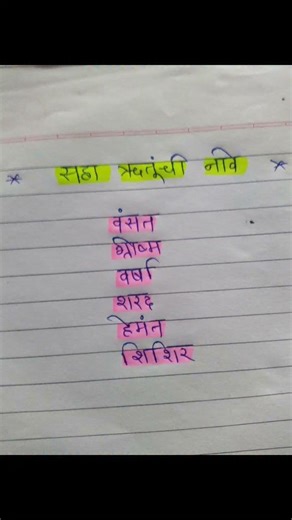 * सहा ऋतूंची नावे *
वंसत
ग्रीष्म
वर्षा
शरद
हेमंत
शिशिर